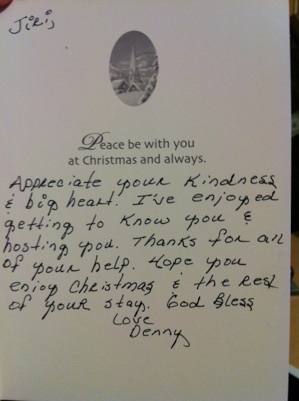 Jiři,
Peace be with you
at Christmas and always.
Appreciate your kindness
& big heart. I've enjoyed
getting to know you &
hosting you. Thanks for all
of your help. Hope you
enjoy Christmas & the rest
of your stay. God Bless
Love
Denny